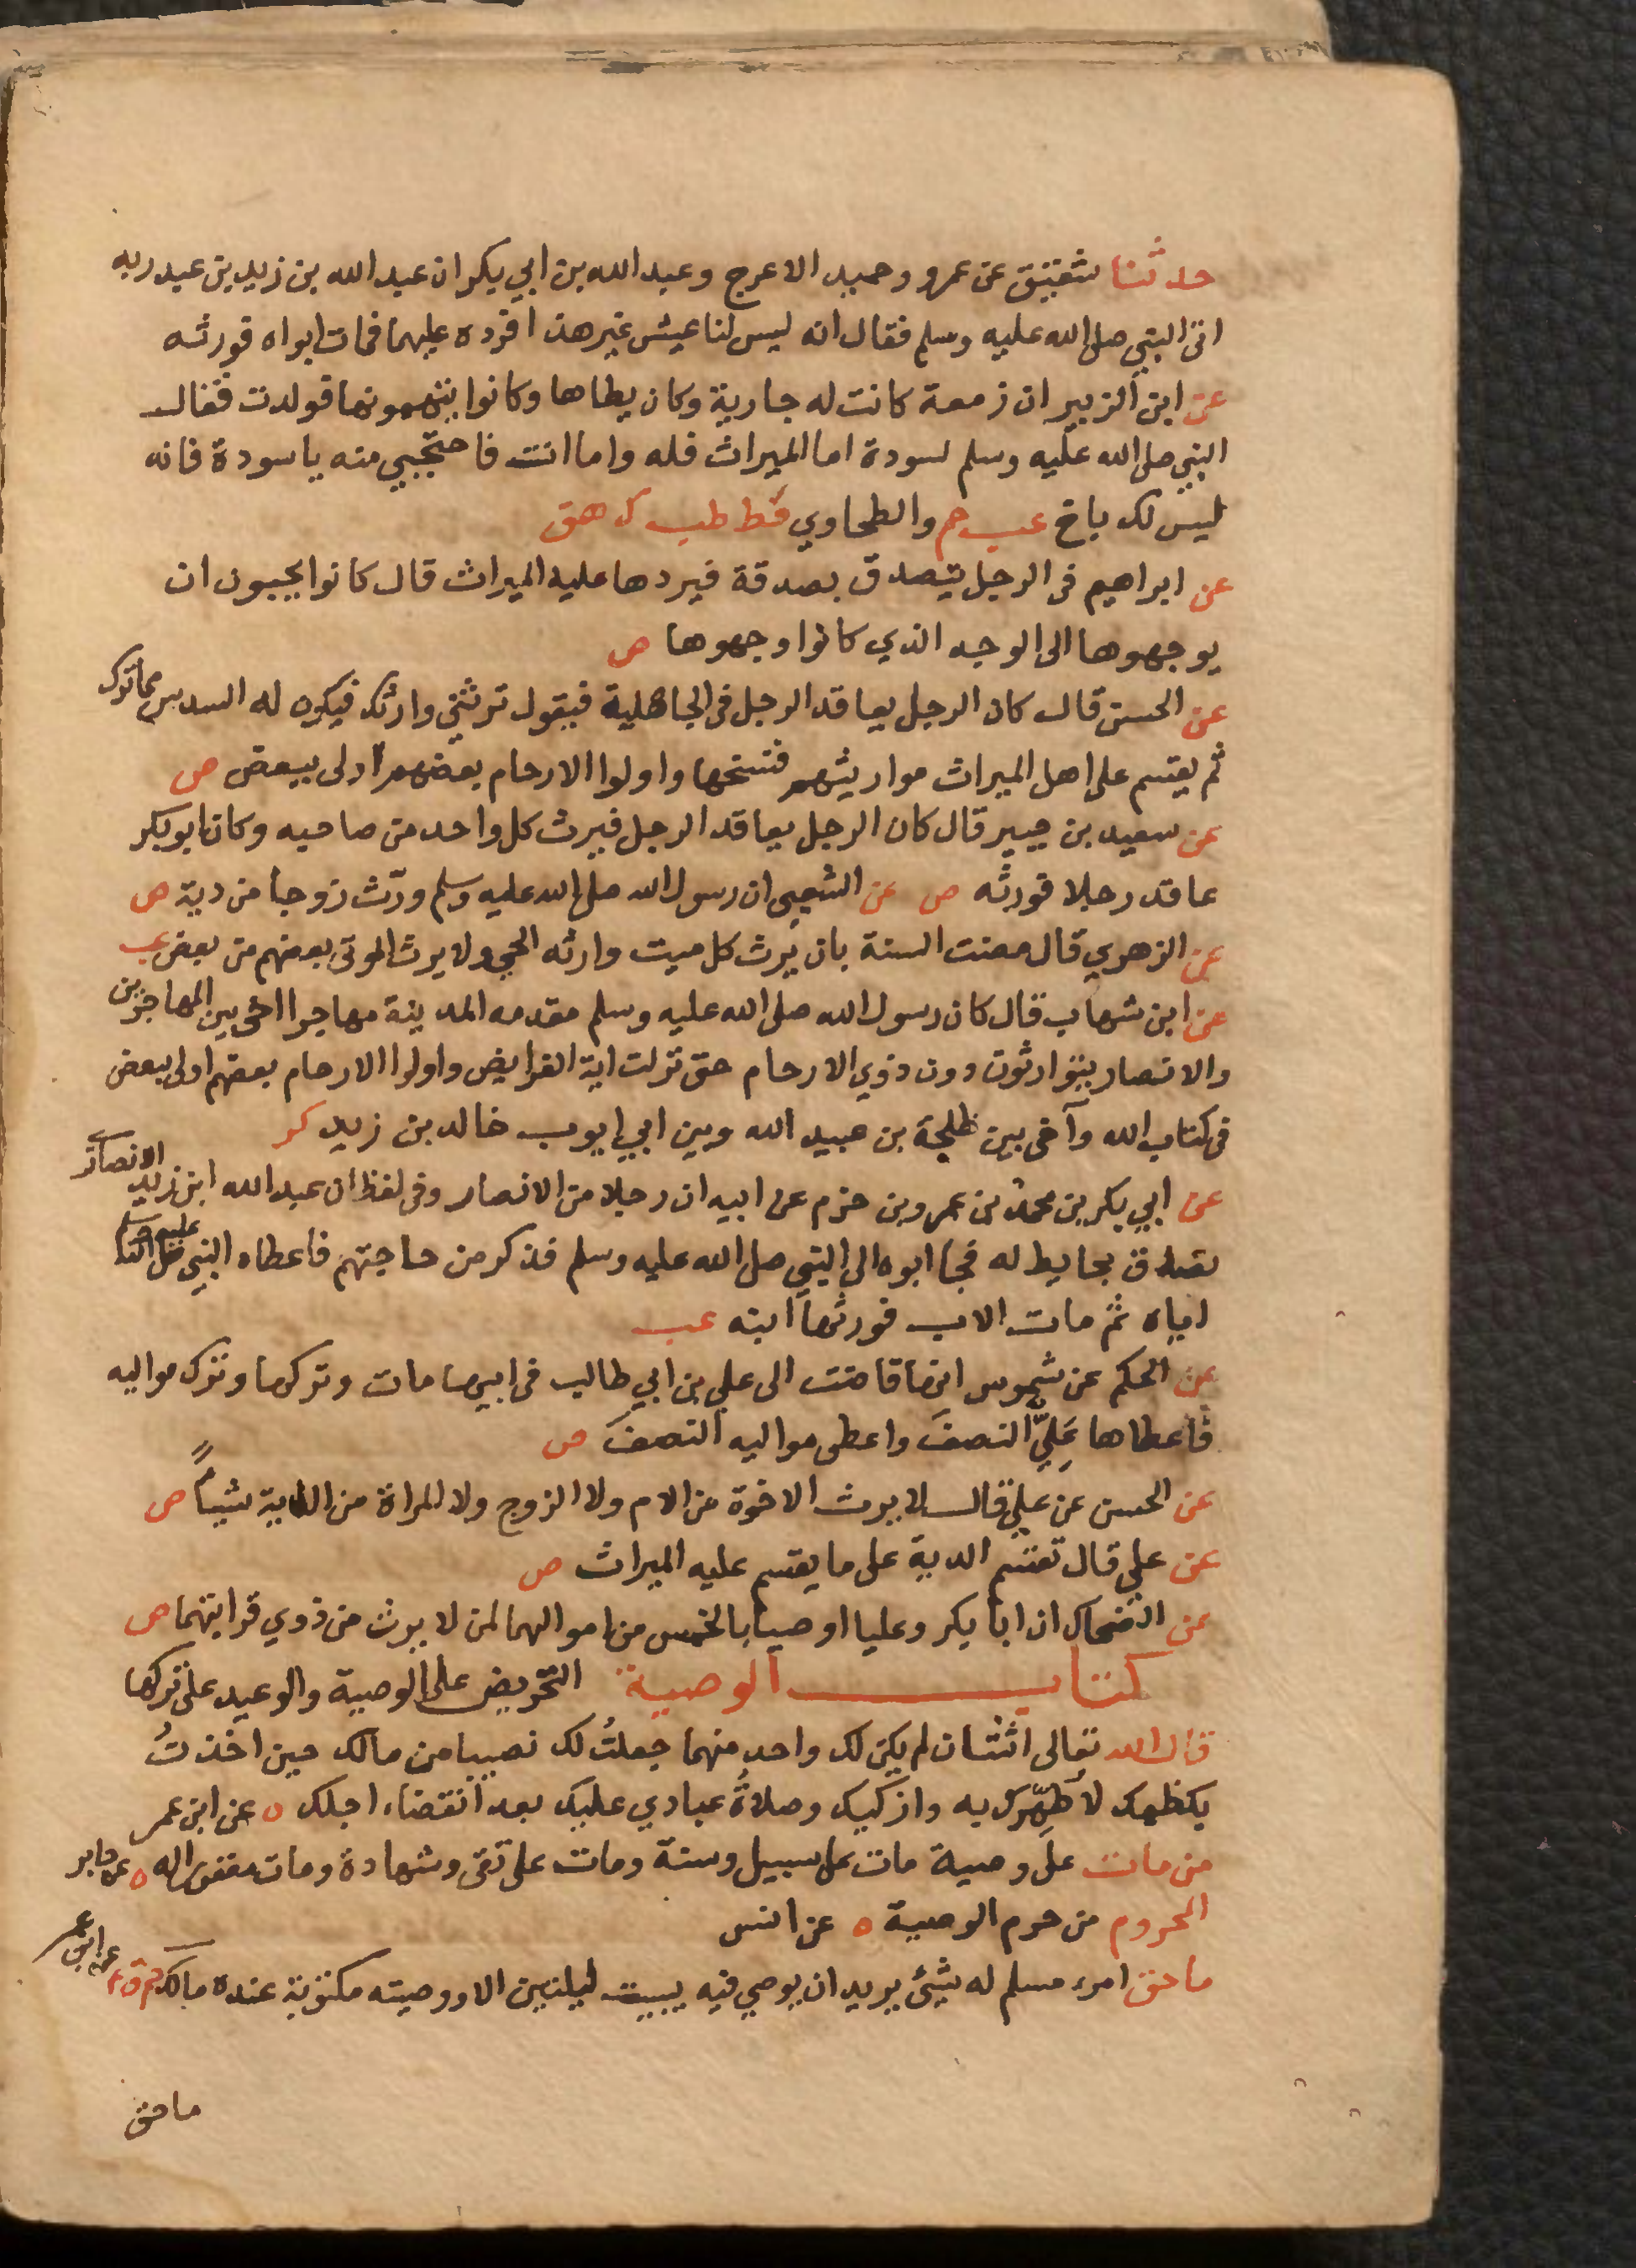 حدثنا شقيق عن عمرو وحميد الاعرج وعبد الله بن ابي بكر ان عبد الله بن زيد بن عبد ربه
اتى النبي صلى الله عليه وسلم فقال انه ليس لنا عيش غير هذا فرده عليهما فمات ابواه فورثه
عن ابن الزبير ان زمعة كانت له جارية وكان يطاها وكانوا يتهمونها فولدت فقال
النبي صلى الله عليه وسلم لسودة اما الميراث فله واما انت فاحتجبي منه يا سودة فانه
ليس لك باخ عب حم والطحاوي قط طب ك هق
عن ابراهيم في الرجل يتصدق بصدقة فيردها عليه الميراث قال كانوا يحبون ان
يوجهوها الى الوجه الذي كانوا وجهوها ص
عن الحسن قال كان الرجل يعاقد الرجل في الجاهلية فيقول ترثني وارثك فيكون له السدس مما ترك
ثم يقسم على اهل الميراث مواريثهم فنسخها واولوا الارحام بعضهم اولى ببعض ص
عن سعيد بن جبير قال كان الرجل يعاقد الرجل فيرث كل واحد من صاحبه وكان ابو بكر
عاقد رجلا فورثه ص عن الشعبي ان رسول الله صلى الله عليه وسلم ورّث زوجا من دية ص
عن الزهري قال مضت السنة بان يرث كل ميت وارثه الحي ولا يرث الموتى بعضهم من بعض عب
عن ابن شهاب قال كان رسول الله صلى الله عليه وسلم مقدمه المدينة مهاجرا اخى بين المهاجرين
والانصار يتوارثون دون ذوي الارحام حتى نزلت اية الفرايض واولوا الارحام بعضهم اولى ببعض
في كتاب الله وآخى بين طلحة بن عبيد الله وبين ابي ايوب خالد بن زيد كر
عن ابي بكر بن محمد بن عمرو بن حزم عن ابيه ان رجلا من الانصار وفي لفظ ان عبد الله ابن زيد الانصاري
تصدق بحايط له فجا ابوه الى النبي صلى الله عليه وسلم فذكر من حاجتهم فاعطاه النبي صلى الله عليه وسلم
اياه ثم مات الاب فورثها ابنه عب
عن الحكم عن شموس انها قاضت الى علي بن ابي طالب في ابيها مات وتركها وترك مواليه
فاعطاها عَلِيٌّ النصفَ واعطى مواليه النصفَ ص
عن الحسن عن علي قال لا يرث الاخوة من الام ولا الزوج ولا المراة من الدية شياً ص
عن علي قال تقسم الدية على ما يقسم عليه الميراث ص
عن الضحاك ان ابا بكر وعليا اوصيا بالخمس من اموالهما لمن لا يرث من ذوي قرابتهما ص
كتاب الوصية التحريض على الوصية والوعيد على تركها
قال الله تعالى اثنتان لم يكن لك واحد منهما جعلتُ لك نصيبا من مالك حين اخذتُ
بكظمك لاطهّرك به وازكيك وصلاةُ عبادي عليك بعد انقضاء اجلك ه عن ابن عمر
من مات على وصية مات على سبيل وسنة ومات على تقى وشهادة ومات مغفورا له ه عن جابر
المحروم من حرم الوصية ه عن انس
ما حق امرء مسلم له شيئ يريد ان يوصي فيه يبيت ليلتين الا ووصيته مكتوبة عنده مالك حم ق ٤ عن ابن عمر
ما حق